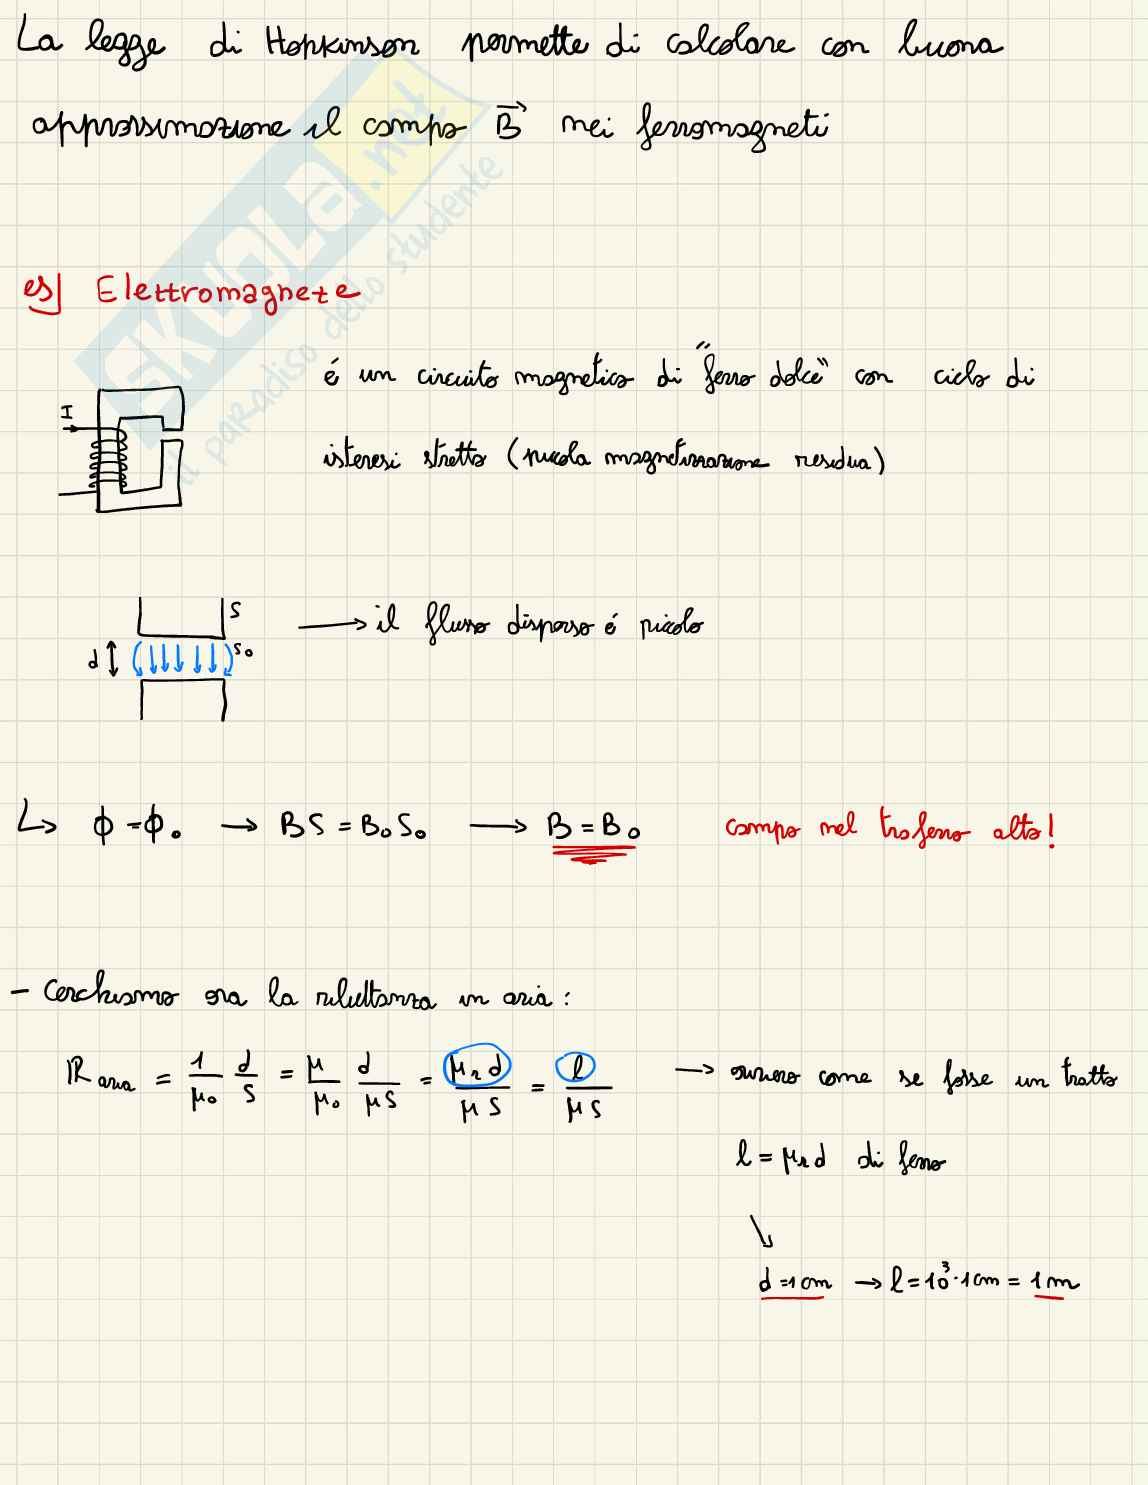 La legge di Hopkinson permette di calcolare con buona
approssimazione il campo B⃗ nei ferromagneti
SKUOLA.net
il paradiso dello studente
es| Elettromagnete
I
é un circuito magnetico di "ferro dolce" con ciclo di
isteresi stretto (piccola magnetizzazione residua)
S
d
S₀
→ il flusso disperso é piccolo
↳ ϕ = ϕ₀ → BS = B₀S₀ → B = B₀ campo nel traferro alto!
- Cerchiamo ora la riluttanza in aria:
ℝ aria = 1/μ₀ d/S = μ/μ₀ d/μS = μᵣd/μS = l/μS → ovvero come se fosse un tratto
l = μᵣd di ferro
↘
d = 1cm → l = 10³·1cm = 1m